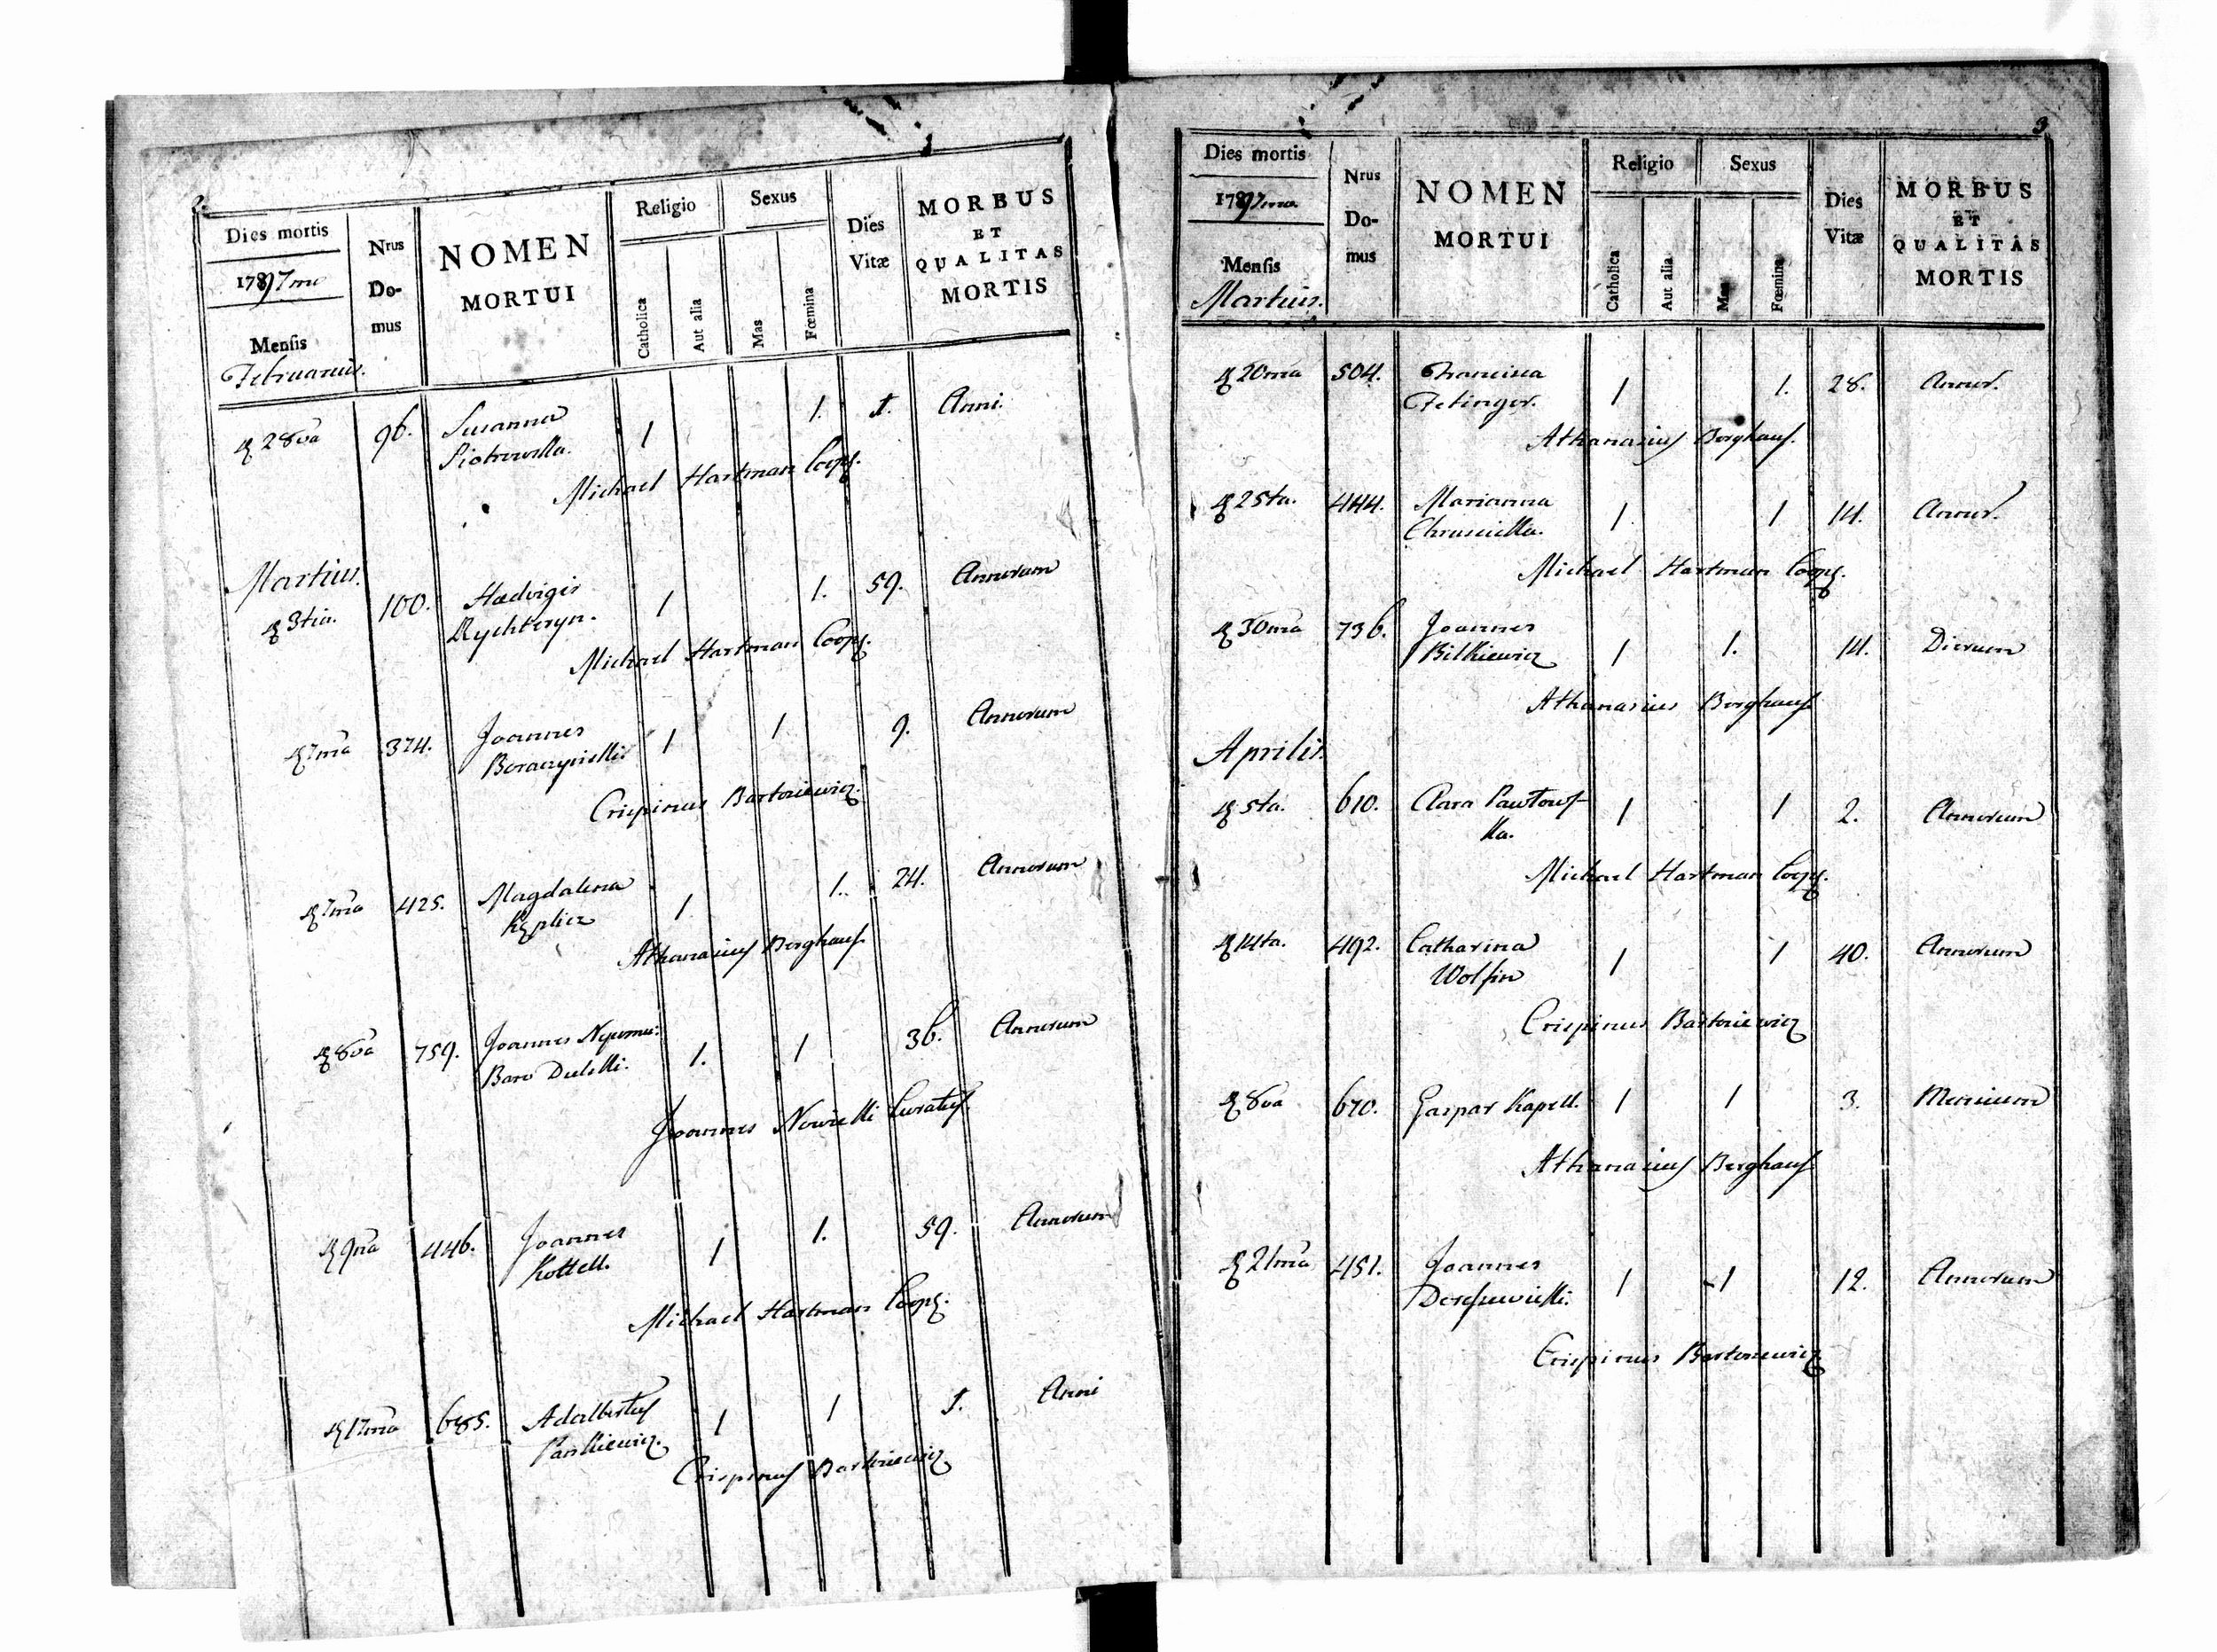 2.
Dies mortis
1797mo
Mensis
Februarius.
Nrus Domus
NOMEN MORTUI
Religio
Catholica
Aut alia
Sexus
Mas
Fœmina
Dies Vitæ
MORBUS ET QUALITAS MORTIS
28va 96. Susanna 1 1. 1. Anni.
Piotrowska.
Michael Hartman Coop.
Martius.
3tia. 100. Hedvigis 1 1. 59. Annorum
Rychteryn.
Michael Hartman Coop.
7ma 374. Joannes 1 1 9. Annorum
Crispinus Bartoniewicz.
7ma 425. Magdalena 1. 1. 24. Annorum
Athanasius Berghauf.
8va 759. Joannes Nepomu: 1. 1 36. Annorum
Baro Dulski.
Joannes Nowicki Curatus.
9na 446. Joannes 1 1. 59. Annorum
Kottell.
Michael Hartman Coop.
17ma 685. Adalbertus 1 1 1. Anni
Pankiewicz.
Crispinus Bartoniewicz
3
Dies mortis
1797mo.
Mensis
Martius.
Nrus Domus
NOMEN MORTUI
Religio
Catholica
Aut alia
Sexus
Mas
Fœmina
Dies Vitæ
MORBUS ET QUALITAS MORTIS
20ma 504. Francisca 1 1. 28. Annor.
Fetinger.
Athanasius Berghauf.
25ta. 444. Marianna 1. 1 14. Annor.
Michael Hartman Coop.
30ma 736. Joannes 1 1. 14. Dierum
Bilkiewicz
Athanasius Berghauf
Aprilis.
5ta. 610. Clara Pawłows- 1 1 2. Annorum
ka.
Michael Hartman Coop.
14ta. 492. Catharina 1 1 40. Annorum
Wolfin
Crispinus Bartoniewicz
8va 670. Gaspar Kapell. 1 1 3. Mensium
Athanasius Berghauf
21ma 451. Joannes 1 1 12. Annorum
Crispinus Bartoniewicz